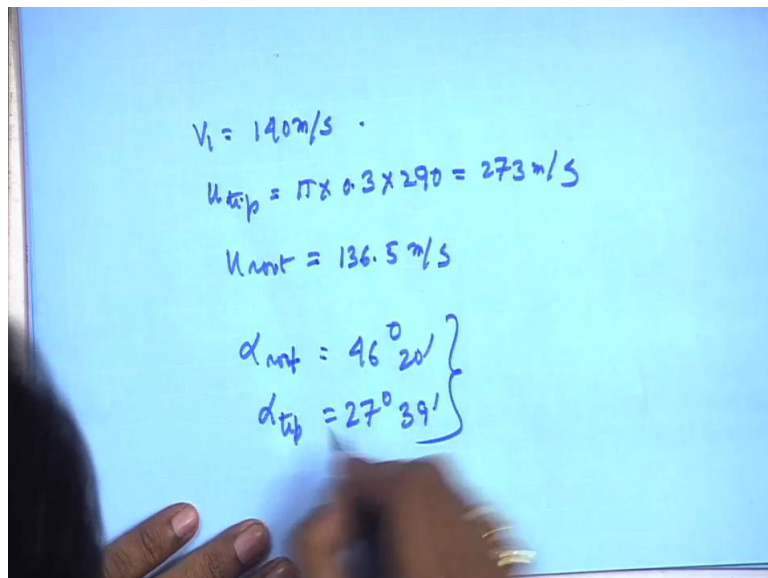 V₁ = 140 m/s .
u tip = π × 0.3 × 290 = 273 m/s
u root = 136.5 m/s
α root = 46° 20′
α tip = 27° 39′